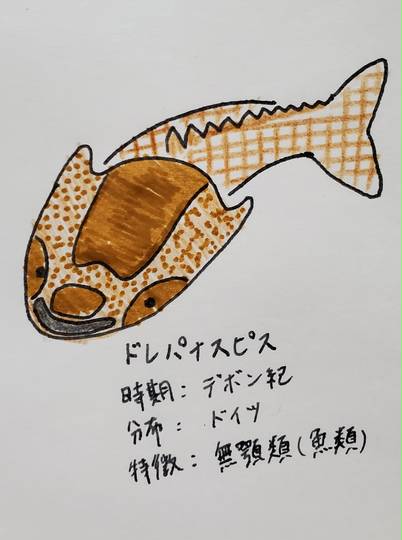 ドレパナスピス
時期：デボン紀
分布：ドイツ
特徴：無顎類(魚類)